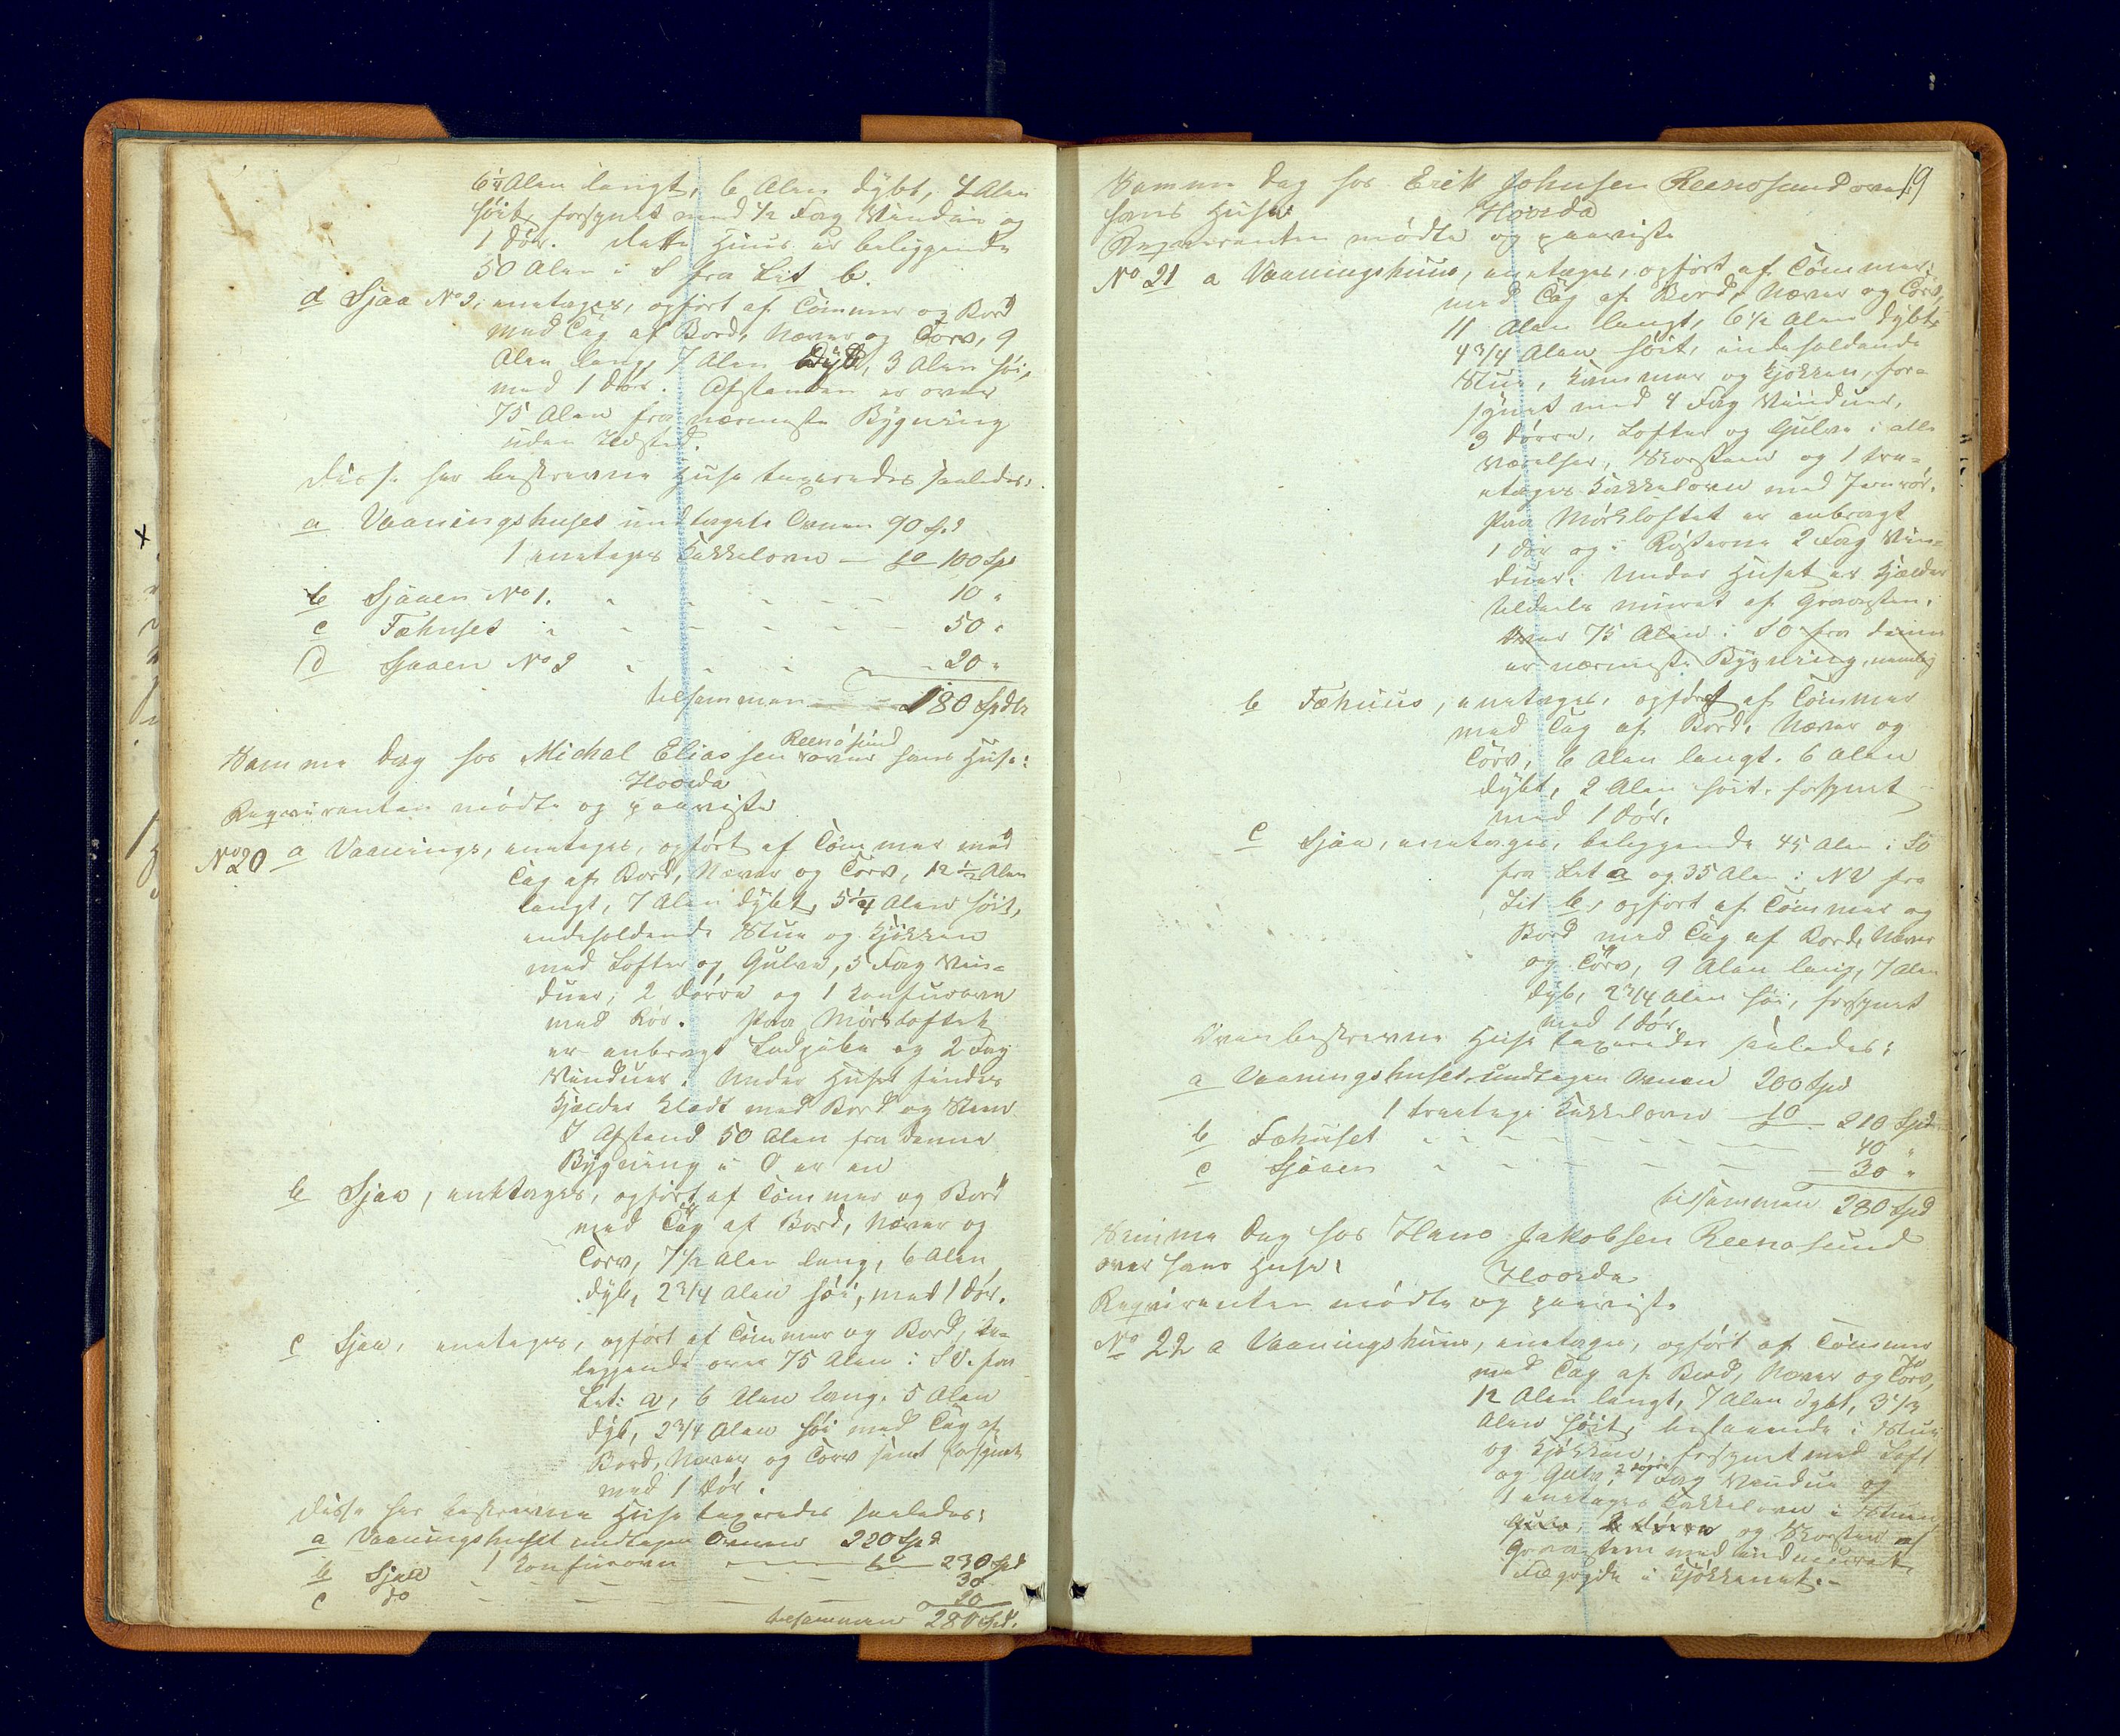 6 1/4 Alen langt, 6 Alen dybt, 4 Alen
höit, forsynet med 1/2 Fag Vinduer og
1 dör. dette Huus er beliggende
50 Alen i S fra Lit b.
d Sjaa No 2, eenetages, opfört af Tömmer og Bord
med Tag af Bord, Næver og Torv, 9
Alen lang, 7 Alen dyb, 3 Alen höi,
med 1 dör. Afstanden er over
75 Alen fra nærmeste Bygning
uden Ildsted.
disse her beskrevne Huse taxeredes saaledes:
a Vaaningshuset undtagen Ovnen 90 Spd
1 eenetages Kakkelovn — 10 100 Spd
b Sjaaen No 1. 10 "
c Fæhuset 50 "
d Sjaaen No 2 20 "
tilsammen 180 Spdlr
Samme Dag hos Michal Eliassen Reenösund over hans Huse:
Hvorda
Reqvirenten mödte og paaviste
No 20 a Vaanings, eenetages, opfört af Tömmer med
Tag af Bord, Næver og Torv, 12 1/2 Alen
langt, 7 Alen dybt, 5 1/4 Alen höit,
indeholdende Stue og Kjökken
med Lofter og Gulve, 5 Fag Vin-
duer, 2 dörre og 1 Komfurovn
med Rör. Paa Mörkloftet
er anbragt og 2 Fag
Vinduer. Under Huset findes
Kjælder klædt med Bord og Steen
I Afstand 50 Alen fra denne
Bygning i O er en
b Sjaa, eenetages, opfört af Tömmer og Bord
med Tag af Bord, Næver og
Torv, 7 1/2 Alen lang, 6 Alen
dyb, 2 3/4 Alen höi, med 1 dör.
c Sjaa, eenetages, opfört af Tömmer og Bord, be-
liggende over 75 Alen i SV. fra
Lit: a, 6 Alen lang, 5 Alen
dyb, 2 3/4 Alen höi med Tag af
Bord, Næver og Torv samt forsynet
med 1 dör.
disse her beskrevne Huse taxeredes saaledes:
a Vaaningshuset undtagen Ovnen 220 Spd
1 Komfurovn 10 230 Spd
b Sjaa 30
c do 20
tilsammen 280 Spd.
19
Samme dag hos Erik Johnsen Reenösund over
hans Huse:
Hvorda
Reqvirenten mödte og paaviste
No 21 a Vaaningshuus, eenetages, opfört af Tömmer,
med Tag af Bord, Næver og Torv,
11 Alen langt, 6 1/2 Alen dybt,
4 3/4 Alen höit, indeholdende
Stue, Kammer og Kjökken, for-
synet med 4 Fag Vinduer,
3 dörre, Lofter og Gulve i alle
Værelser, Skorsteen og 1 tre-
etages Kakkelovn med Jernrör.
Paa Mörkloftet er anbragt
1 dör og i Rösterne 2 Fag Vin-
duer. Under Huset er Kjælder
tildeels muret af Graasteen.
Over 75 Alen i SO fra denne
er nærmeste Bygning, nemlig
b Fæhuus, eenetages, opfört af Tömmer
med Tag af Bord, Næver og
Torv, 6 Alen langt, 6 Alen
dybt, 2 Alen höit, forsynet
med 1 dör.
c Sjaa, eenetages, beliggende 45 Alen i SO
fra Lit a og 35 Alen i NV fra
Lit b, opfört af Tömmer og
Bord med Tag af Bord, Næver
og Torv, 9 Alen lang, 7 Alen
dyb, 2 3/4 Alen höi, forsynet
med 1 dör.
Ovenbeskrevne Huse taxeredes saaledes:
a Vaaningshuset undtagen Ovnen 200 Spd
1 treetages Kakkelovn 10 210 Spd
b Fæhuset 40 "
c Sjaaen 30 "
tilsammen 280 Spd
Samme Dag hos Hans Jakobsen Reenösund
over hans Huse:
Hvorda
Reqvirenten mödte og paaviste
No 22 a Vaaningshuus, eenetages, opfört af Tömmer
med Tag af Bord, Næver og Torv,
12 Alen langt, 7 Alen dybt, 3 1/3
Alen höit, bestaaende i Stue
og Kjökken, forsynet med Loft
og Gulv, 2 dörre, 7 Fag Vindue og
1 eenetages Kakkelovn i Stuen
2 dörre og Skorsteen af
Graasteen med indmuret
i Kjökkenet.-